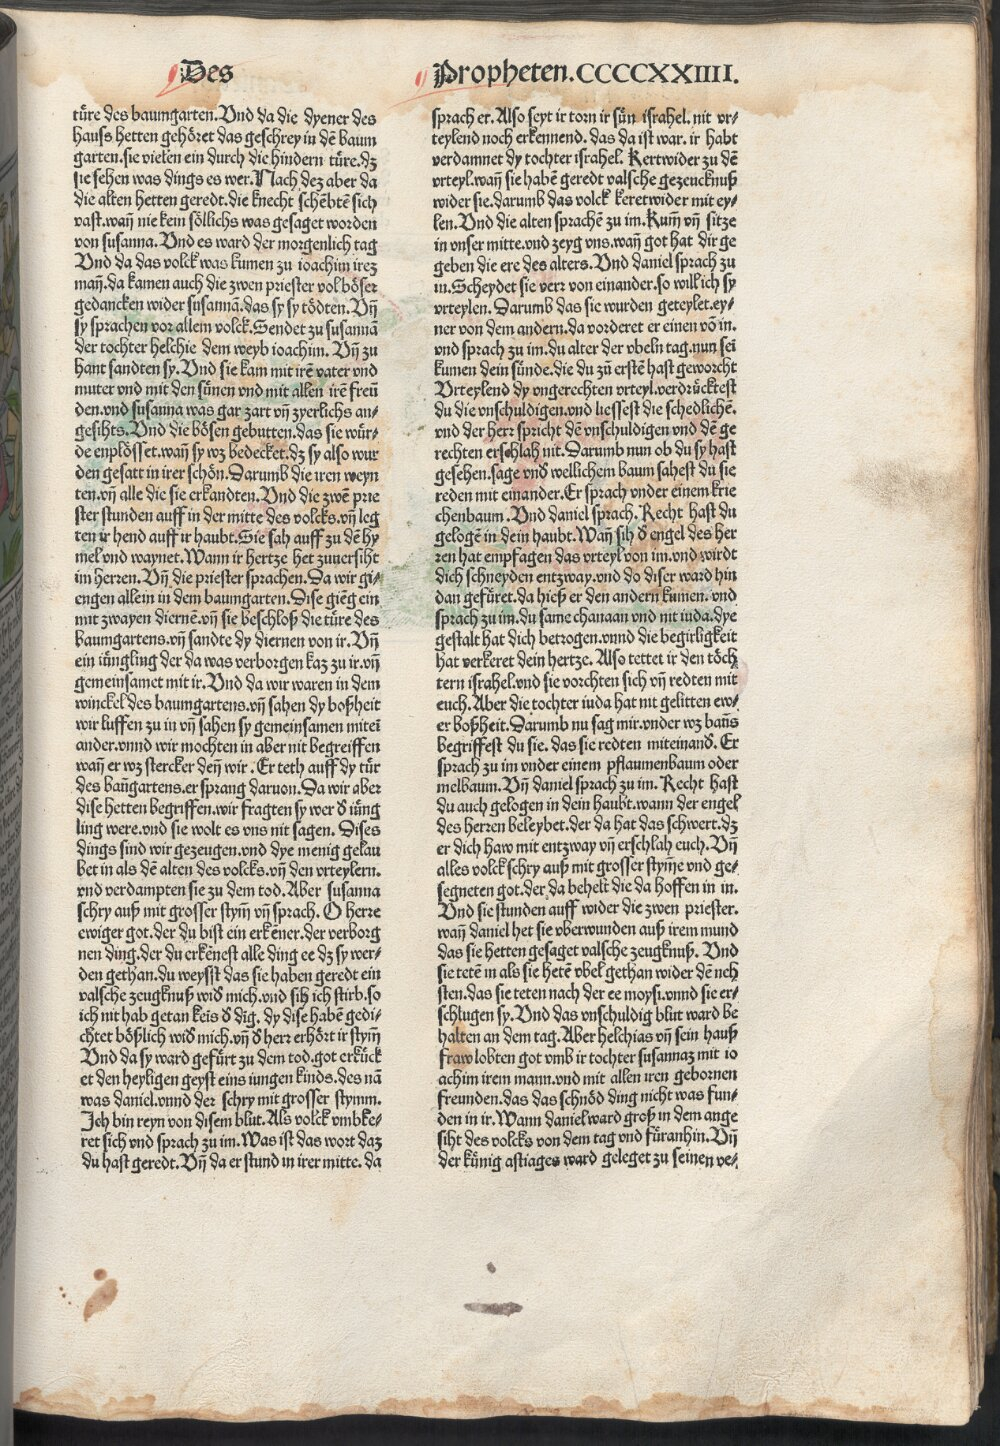 Des Propheten. CCCCXXIIII.
türe des baumgarten. Vnd da die dyener des
hauss hetten gehöret das geschrey in dē baum
garten. sie vielen ein durch die hindern türe. dz
sie sehen was dings es wer. Nach dez aber da
die alten hetten geredt. die knecht schēbtē sich
vast. wañ nie kein söllichs was gesaget worden
von susanna. Vnd es ward der morgenlich tag
Vnd da das volck was kumen zu ioachim irez
mañ. da kamen auch die zwen priester vol böser
gedancken wider susannā. das sy sy tödten. Vñ
sy sprachen vor allem volck. Sendet zu susannā
der tochter helchie dem weyb ioachim. Vñ zu
hant sandten sy. Vnd sie kam mit irē vater vnd
muter vnd mit den sünen vnd mit allen irē freü
den. vnd susanna was gar zart vñ zyerlichs an⸗
gesihts. Vnd die bösen gebutten. das sie wür⸗
de enplösset. wañ sy wz bedecket. dz sy also wur
den gesatt in irer schön. Darumb die iren weyn
ten. vñ alle die sie erkandten. Vnd die zwē prie
ster stunden auff in der mitte des volcks. vñ leg
ten ir hend auff ir haubt. Sie sah auff zu dē hy
mel vnd waynet. Wann ir hertze het zuuersiht
im herren. Vñ die priester sprachen. Da wir gi⸗
engen allein in dem baumgarten. Dise giēg ein
mit zwayen diernē. vñ sie beschloß die türe des
baumgartens. vñ sandte dy diernen von ir. Vñ
ein iüngling der da was verborgen kaz zu ir. vñ
gemeinsamet mit ir. Vnd da wir waren in dem
winckel des baumgartens. vñ sahen dy boßheit
wir luffen zu in vñ sahen sy gemeinsamen mitei
ander. vnnd wir mochten in aber nit begreiffen
wañ er wz stercker deñ wir. Er teth auff dy tür
des baūgartens. er sprang daruon. Da wir aber
dise hetten begriffen. wir fragten sy wer ď iüng
ling were. vnd sie wolt es vns nit sagen. Dises
dings sind wir gezeugen. vnd dye menig gelau
bet in als dē alten des volcks. vñ den vrteylern.
vnd verdampten sie zu dem tod. Aber susanna
schry auß mit grosser stym̄ vñ sprach. O herre
ewiger got. der du bist ein erkēner. der verborg
nen ding. der du erkēnest alle ding ee dz sy wer⸗
den gethan. du weysst das sie haben geredt ein
valsche zeugknuß wiď mich. vnd sih ich stirb. so
ich nit hab getan keis ď dīg. dy dise habē gedi⸗
chtet bößlich wiď mich. vñ ď herr erhört ir stym̄
Vnd da sy ward gefürt zu dem tod. got erkück
et den heyligen geyst eins iungen kinds. des nā
was daniel. vnnd der schry mit grosser stymm.
Ich bin reyn von disem blut. Als volck vmbke⸗
ret sich vnd sprach zu im. Was ist das wort daz
du hast geredt. Vñ da er stund in irer mitte. da
sprach er. Also seyt ir torn ir sün israhel. nit vr⸗
teylend noch erkennend. das da ist war. ir habt
verdamnet dy tochter israhel. Kertwider zu dē
vrteyl. wañ sie habē geredt valsche gezeucknuß
wider sie. darumb das volck keretwider mit ey⸗
len. Vnd die alten sprachē zu im. Kum̄ vñ sitze
in vnser mitte. vnd zeyg vns. wañ got hat dir ge
geben die ere des alters. Vnd daniel sprach zu
in. Scheydet sie verr von einander. so will ich sy
vrteylen. Darumb das sie wurden geteylet. ey⸗
ner von dem andern. da vorderet er einen vō in.
vnd sprach zu im. du alter der vbeln tag. nun sei
kumen dein sünde. die du zū erstē hast geworcht
Vrteylend dy vngerechten vrteyl. verdrücktest
du die vnschuldigen. vnd liessest die schedlichē.
vnd der herr spricht dē vnschuldigen vnd dē ge
rechten erschlah nit. Darumb nun ob du sy hast
gesehen. sage vnď wellichem baum sahest du sie
reden mit einander. Er sprach vnder einem krie
chenbaum. Vnd daniel sprach. Recht hast du
gelogē in dein haubt. Wañ sih ď engel des her
ren hat empfagen das vrteyl von im. vnd wirdt
dich schneyden entzway. vnd do diser ward hin
dan gefüret. da hieß er den andern kumen. vnd
sprach zu im. du same chanaan vnd nit iuda. dye
gestalt hat dich betrogen. vnnd die begirligkeit
hat verkeret dein hertze. Also tettet ir den töch
tern israhel. vnd sie vorchten sich vñ redten mit
euch. Aber die tochter iuda hat nit gelitten ew⸗
er boßheit. Darumb nu sag mir. vnder wz baūs
begriffest du sie. das sie redten miteinanď. Er
sprach zu im vnder einem pflaumenbaum oder
melbaum. Vñ daniel sprach zu im. Recht hast
du auch gelogen in dein haubt. wann der engel
des herren beleybet. der da hat das schwert. dz
er dich haw mit entzway vñ erschlah euch. Vñ
alles volck schry auß mit grosser stym̄e vnd ge⸗
segneten got. der da behelt die da hoffen in in.
Vnd sie stunden auff wider die zwen priester.
wañ daniel het sie vberwunden auß irem mund
das sie hetten gesaget valsche zeugknuß. Vnd
sie tetē in als sie hetē vbel gethan wider dē nch
sten. das sie teten nach der ee moysi. vnnd sie er⸗
schlugen sy. Vnd das vnschuldig blut ward be
halten an dem tag. Aber helchias vñ sein hauß
fraw lobten got vmb ir tochter susannaz mit io
achim irem mann. vnd mit allen iren gebornen
freunden. das das schnöd ding nicht was fun⸗
den in ir. Wann daniel ward groß in dem ange
siht des volcks von dem tag vnd füranhin. Vñ
der künig astiages ward geleget zu seinen ve⸗